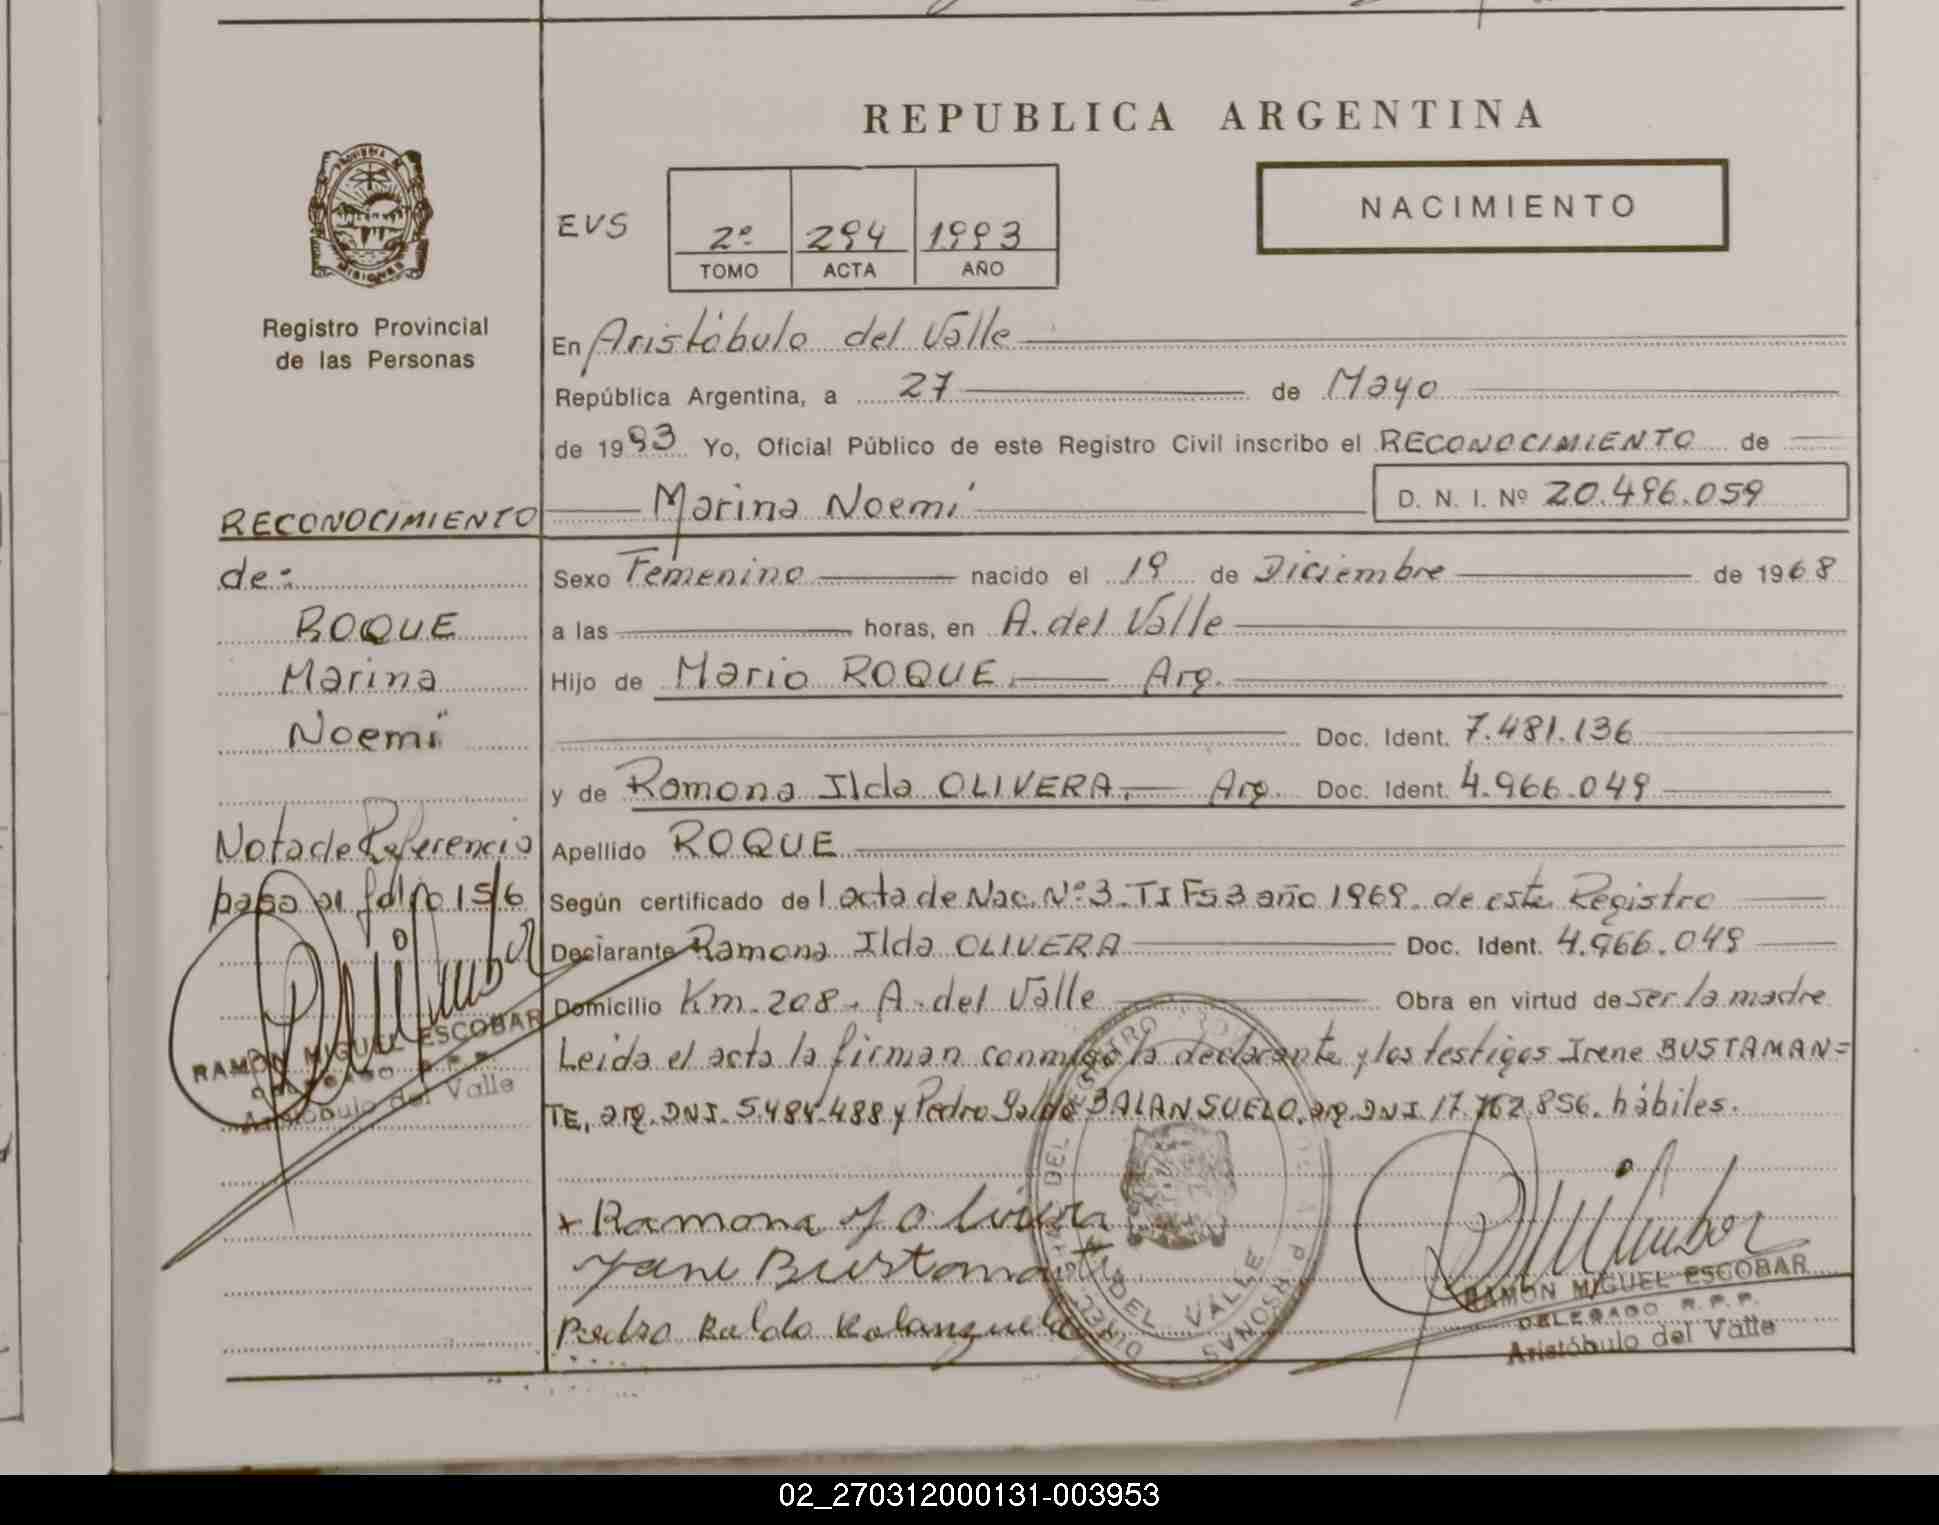 REPUBLICA ARGENTINA
NACIMIENTO
EVS
2º 294 1993
TOMO ACTA AÑO
Registro Provincial
de las Personas
En Aristóbulo del Valle
República Argentina, a 27 de Mayo
de 1993 Yo, Oficial Público de este Registro Civil inscribo el RECONOCIMIENTO de
Marina Noemí D. N. I. Nº 20.496.059
RECONOCIMIENTO
de:
ROQUE
Marina
Noemí
Nota de Referencia
pasa al folio 156
RAMÓN MIGUEL ESCOBAR
DELEGADO R.P.P.
Aristóbulo del Valle
Sexo Femenino nacido el 19 de Diciembre de 1968
a las horas, en A. del Valle
Hijo de Mario ROQUE. Arg.
Doc. Ident. 7.481.136
y de Ramona Ilda OLIVERA. Arg. Doc. Ident. 4.966.049
Apellido ROQUE
Según certificado de l acta de Nac. Nº 3. TI Fs 3 año 1969. de este Registro
Declarante Ramona Ilda OLIVERA Doc. Ident. 4.966.049
Domicilio Km. 208. A. del Valle Obra en virtud de ser la madre
Leida el acta la firman conmigo la declarante y los testigos Irene BUSTAMAN=
TE, arg. DNI. 5.484.488 y Pedro BALANSUELO. arg. DNI 17.762.856. hábiles.
Ramona I Olivera
Pedro
DEL VALLE
RAMÓN MIGUEL ESCOBAR
DELEGADO R.P.P.
Aristóbulo del Valle
02_270312000131-003953